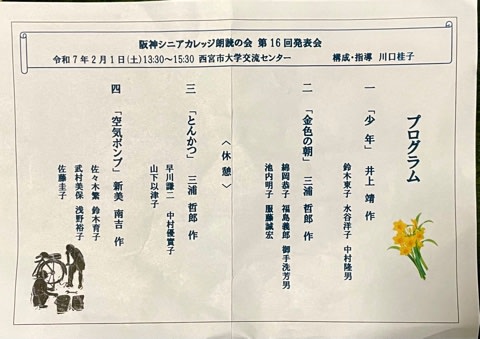 阪神シニアカレッジ朗読の会 第16回発表会
令和7年2月1日(土)13:30~15:30 西宮市大学交流センター 構成・指導 川口桂子
プログラム
一 「少年」 井上 靖 作
鈴木東子 水谷洋子 中村隆男
二 「金色の朝」 三浦 哲郎 作
綿岡恭子 福島義郎 御手洗芳男
池内明子 服藤誠宏
〈休憩〉
三 「とんかつ」 三浦 哲郎 作
早川謙二 中村優實子
山下以津子
四 「空気ポンプ」 新美 南吉 作
佐々木繁 鈴木育子
武村美保 浅野裕子
佐藤圭子